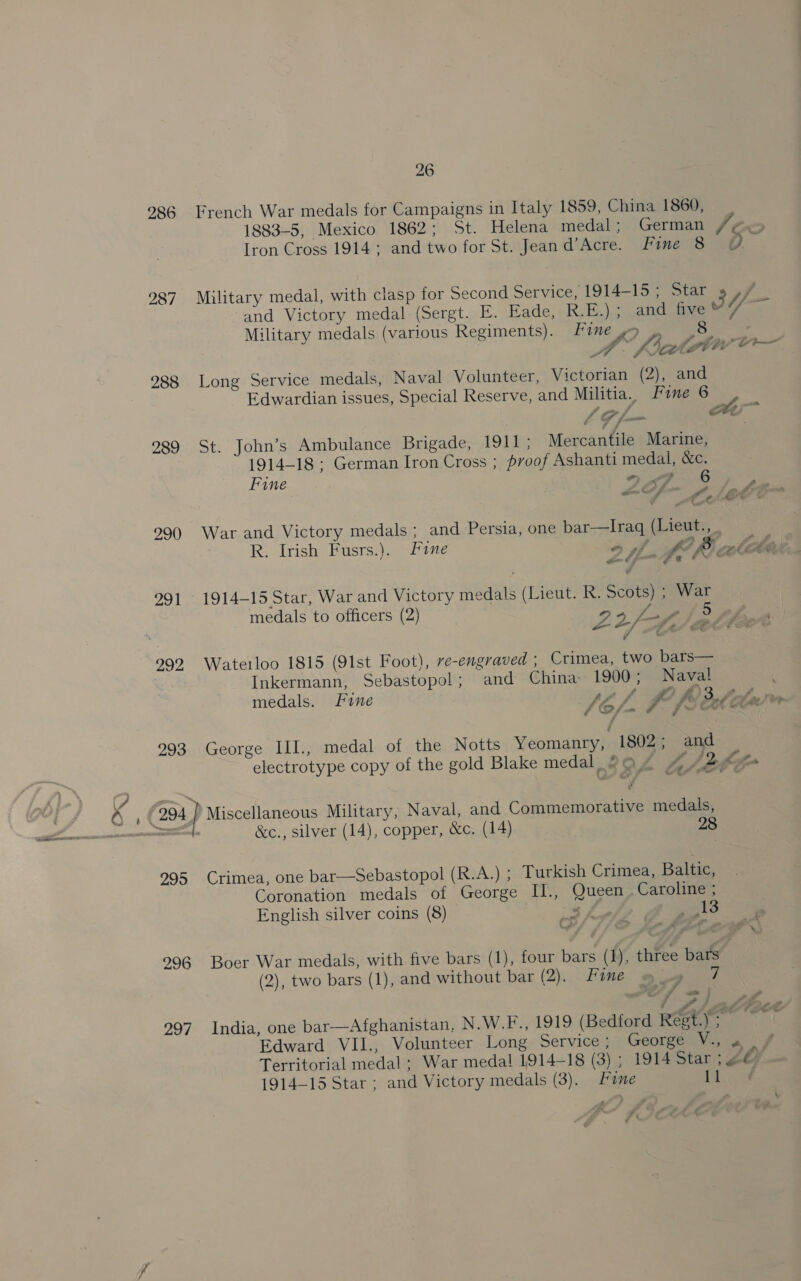 26
286 French War medals for Campaigns in Italy 1859, China 1860,
1883–5, Mexico 1862; St. Helena medal; German
Iron Cross 1914; and two for St. Jean d'Acre. Fine 8
287 Military medal, with clasp for Second Service, 1914–15; Star
and Victory medal (Sergt. E. Eade, R.E.); and five
Military medals (various Regiments). Fine 8
288 Long Service medals, Naval Volunteer, Victorian (2), and
Edwardian issues, Special Reserve, and Militia. Fine 6
289 St. John's Ambulance Brigade, 1911; Mercantile Marine,
1914–18; German Iron Cross; proof Ashanti medal, &c.
Fine 6
290 War and Victory medals; and Persia, one bar—Iraq (Lieut.,
R. Irish Fusrs.). Fine 3
291 1914–15 Star, War and Victory medals (Lieut. R. Scots); War
medals to officers (2) 5
292 Waterloo 1815 (91st Foot), re-engraved; Crimea, two bars—
Inkermann, Sebastopol; and China 1900; Naval
medals. Fine 3
293 George III., medal of the Notts Yeomanry, 1802; and
electrotype copy of the gold Blake medal 2
294 Miscellaneous Military, Naval, and Commemorative medals,
&c., silver (14), copper, &c. (14) 28
295 Crimea, one bar—Sebastopol (R.A.); Turkish Crimea, Baltic,
Coronation medals of George II., Queen Caroline;
English silver coins (8) 13
296 Boer War medals, with five bars (1), four bars (1), three bars
(2), two bars (1), and without bar (2). Fine 7
297 India, one bar—Afghanistan, N.W.F., 1919 (Bedford Regt.);
Edward VII., Volunteer Long Service; George V.,
Territorial medal; War medal 1914–18 (3); 1914 Star;
1914–15 Star; and Victory medals (3). Fine 11